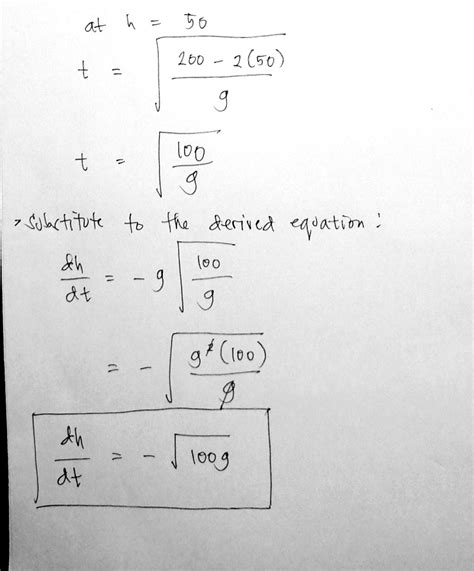 at h = 50
t = √((200 - 2(50))/g)
t = √(100/g)
> substitute to the derived equation :
dh/dt = - g √(100/g)
= - √(g²(100)/g)
dh/dt = - √(100g)